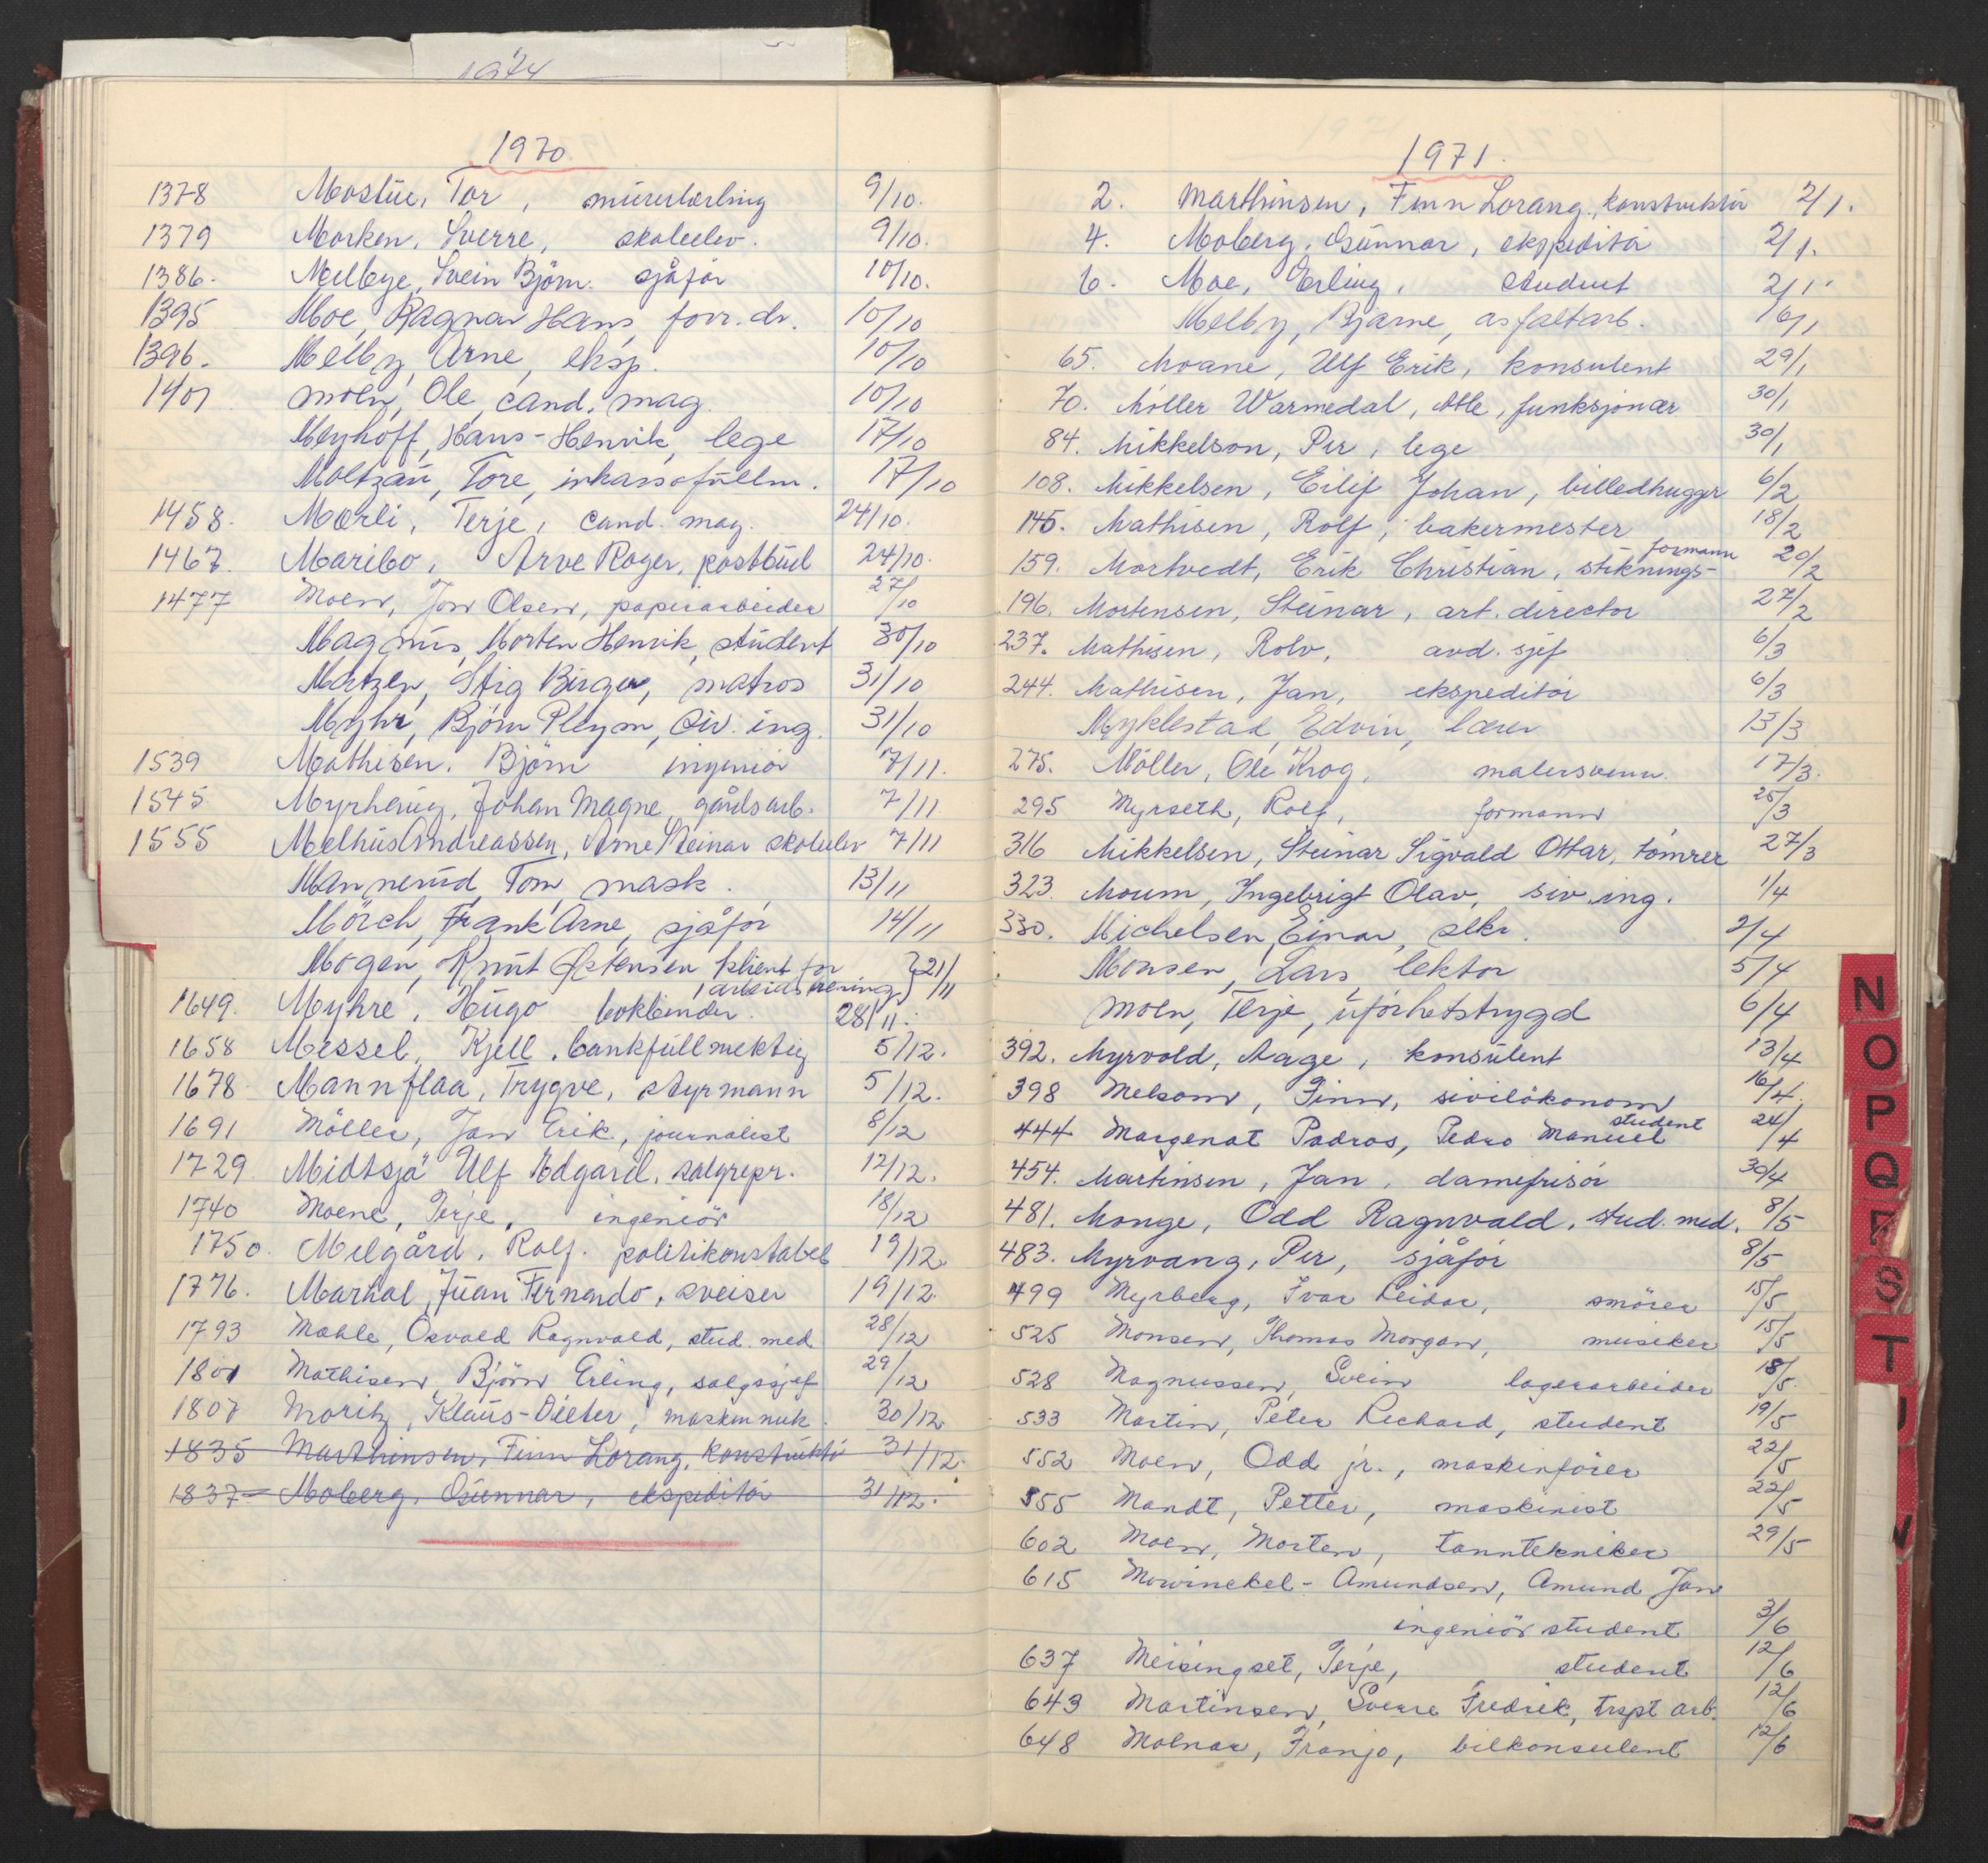 1974
1970.
1378 Mostue, Tor, murerlærling 9/10.
1379 Morken, Sverre, skoleelev. 9/10.
1386. Melbye, Svein Bjørn. sjåfør 10/10.
1395 Moe, Ragnar Hans, forr. dr. 10/10
1396. Melby, Arne, eksp. 10/10
1401 Moen, Ole, cand. mag. 10/10
Meyhoff, Hans-Henrik, lege 17/10
Moltzau, Tore, inkassofullm. 17/10
1458. Mærli, Terje, cand. mag. 24/10.
1467. Maribo, Arve Roger, postbud 24/10.
1477 Moen, Jon Olsen, papirarbeider 27/10
Magnus, Morten Henrik, student 30/10
Matzen, Stig Birger, matros 31/10
Myhr, Bjørn Pleym, siv. ing. 31/10
1539 Mathisen, Bjørn ingeniør 7/11.
1545. Myrhaug, Johan Magne, gårdsarb. 7/11
1555 Melhus Andreassen, Arne Steinar skoleelev 7/11
Mannerud, Tom, mask. 13/11
Mörch, Frank Arne, sjåför 14/11
Mogen, Knut Østensen klient for
arbeidstrening } 21/11
1649. Myhre, Hugo bokbinder. 28/11.
1658 Messel, Kjell, bankfullmektig 5/12.
1678 Mannflaa, Trygve, styrmann 5/12.
1691 Möller, Jan Erik, journalist 8/12
1729. Midtsjö Ulf Edgard, salgrepr. 12/12.
1740 Moene, Terje, ingeniör 18/12
1750. Melgård, Rolf. politikonstabel 19/12.
1776. Marhal, Juan Fernando, sveiser 19/12.
1793 Mæhle, Osvald Ragnvald, stud. med. 28/12
1801 Mathisen, Björn Erling, salgssjef 29/12
1807 Moritz, Klaus-Dieter, maskinmek. 30/12
1835 Marthinsen, Finn Lorang, konstruktør 31/12.
1837 Moberg, Gunnar, ekspeditør 31/12.
1971.
2. Marthinsen, Finn Lorang, konstruktør 2/1.
4. Moberg, Gunnar, ekspeditør 2/1.
6. Moe, Erling, student 2/1.
Melby, Bjarne, asfaltarb. 16/1
65. Moane, Ulf Erik, konsulent 29/1
70. Möller Warmedal, Atle, funksjonær 30/1
84. Mikkelson, Per, lege 30/1
108. Mikkelsen, Eilif Johan, billedhugger 6/2
145. Mathisen, Rolf, bakermester 18/2
159. Mortvedt, Erik Christian, stiknings-formann 20/2
196. Mortensen, Steinar, art. director 27/2
237. Mathisen, Rolv, avd. sjef 6/3
244. Mathisen, Jan, ekspeditør 6/3
Myklestad, Edvin, lærer 13/3
275. Möller, Ole Krog, malersvenn. 17/3.
295 Myrseth, Rolf, formann 25/3
316 Mikkelsen, Steinar Sigvald Ottar, tømrer 27/3
323. Moum, Ingebrigt Olav, siv. ing. 1/4
330. Michelsen, Einar, slkr. 2/4
Monsen, Lars, lektor 5/4
Moen, Terje, uførhetstrygd 6/4
392. Myrvold, Aage, konsulent 13/4
398 Melsom, Finn, siviløkonom 16/4.
444 Margenat Padros, Pedro Manuel student 24/4
454. Martinsen, Jan, damefrisør 30/4
481. Monge, Odd Ragnvald, stud. med. 8/5
483. Myrvang, Per, sjåfør 8/5
499 Myrberg, Ivar Reidar, smører 15/5
525 Monsen, Thomas Morgan, musiker 15/5
528 Magnussen, Svein lagerarbeider 18/5.
533 Martin, Peter Richard, student 19/5
552 Moen, Odd jr., maskinfører 22/5
555 Mandt, Petter, maskinist 22/5
602 Moen, Morten, tanntekniker 29/5
615 Mowinckel-Amundsen, Amund Jan
ingeniör student 3/6
637 Meisingset, Terje, student 12/6
643 Martinsen, Sverre Fredrik, trspt arb. 12/6
648 Molnar, Franjo, bilkonsulent 12/6
N
O
P
Q
R
S
T
U